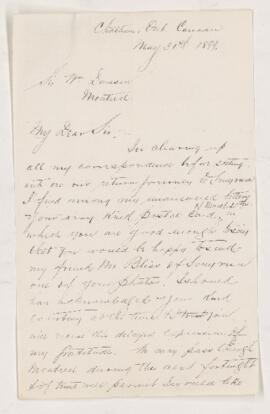 Chatham, Ont. Canada
May 30th 189
Sir Wm Dawson
Montreal
My Dear Sir:-
In clearing up
all my correspondence before setting
out on our return journey to Smyrna
I find among my unanswered letters
of March 21st
your very kind Postal Card, in
which you are good enough to say
that you would be happy to send
my friend Mr Bliss of Smyrna
one of your photos. I should
have acknowledged your kind
courtesy at the time &
this delayed expression of
my gratitude. We may pass through
Montreal during the next fortnight
& if time will permit I would like